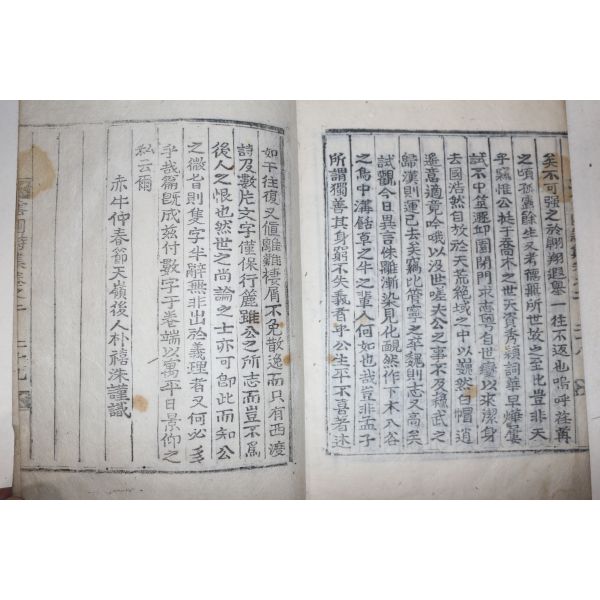 矣不可强之於翩翔遐擧一往不返也嗚呼荏苒
之頃孤露餘生又者德無所世故之至此豈非天
乎竊惟公挺于喬木之世天資秀穎詞華早燁屢
試不中筮遯邱園閉門求志粤自世變以來潔身
去國浩然自放於天荒絶域之中以巍然白帽逍
遙高適竟吟哦以沒世嗟夫公之事不及蘇武之
歸漢則運已去矣竊比管寧之卒魏則志又高矣
試觀今日異言侏離漸染見化靦然作下木入谷
之鳥中溝餂草之牛之輩人何如也哉豈非孟子
所謂獨善其身窮不失義者乎公生平不喜著述
如干往復又値亂離棲屑不免散逸而只有西渡
詩及數片文字僅保行簏雖公之所志而豈不爲
後人之恨也然世之尚論之士亦可卽此而知公
之微旨則隻字半辭無非出於義理者又何必多
乎哉篇旣成玆付數字于卷端以寓平日景仰之
私云爾
赤牛仲春節天嶺後人朴禧洙謹識